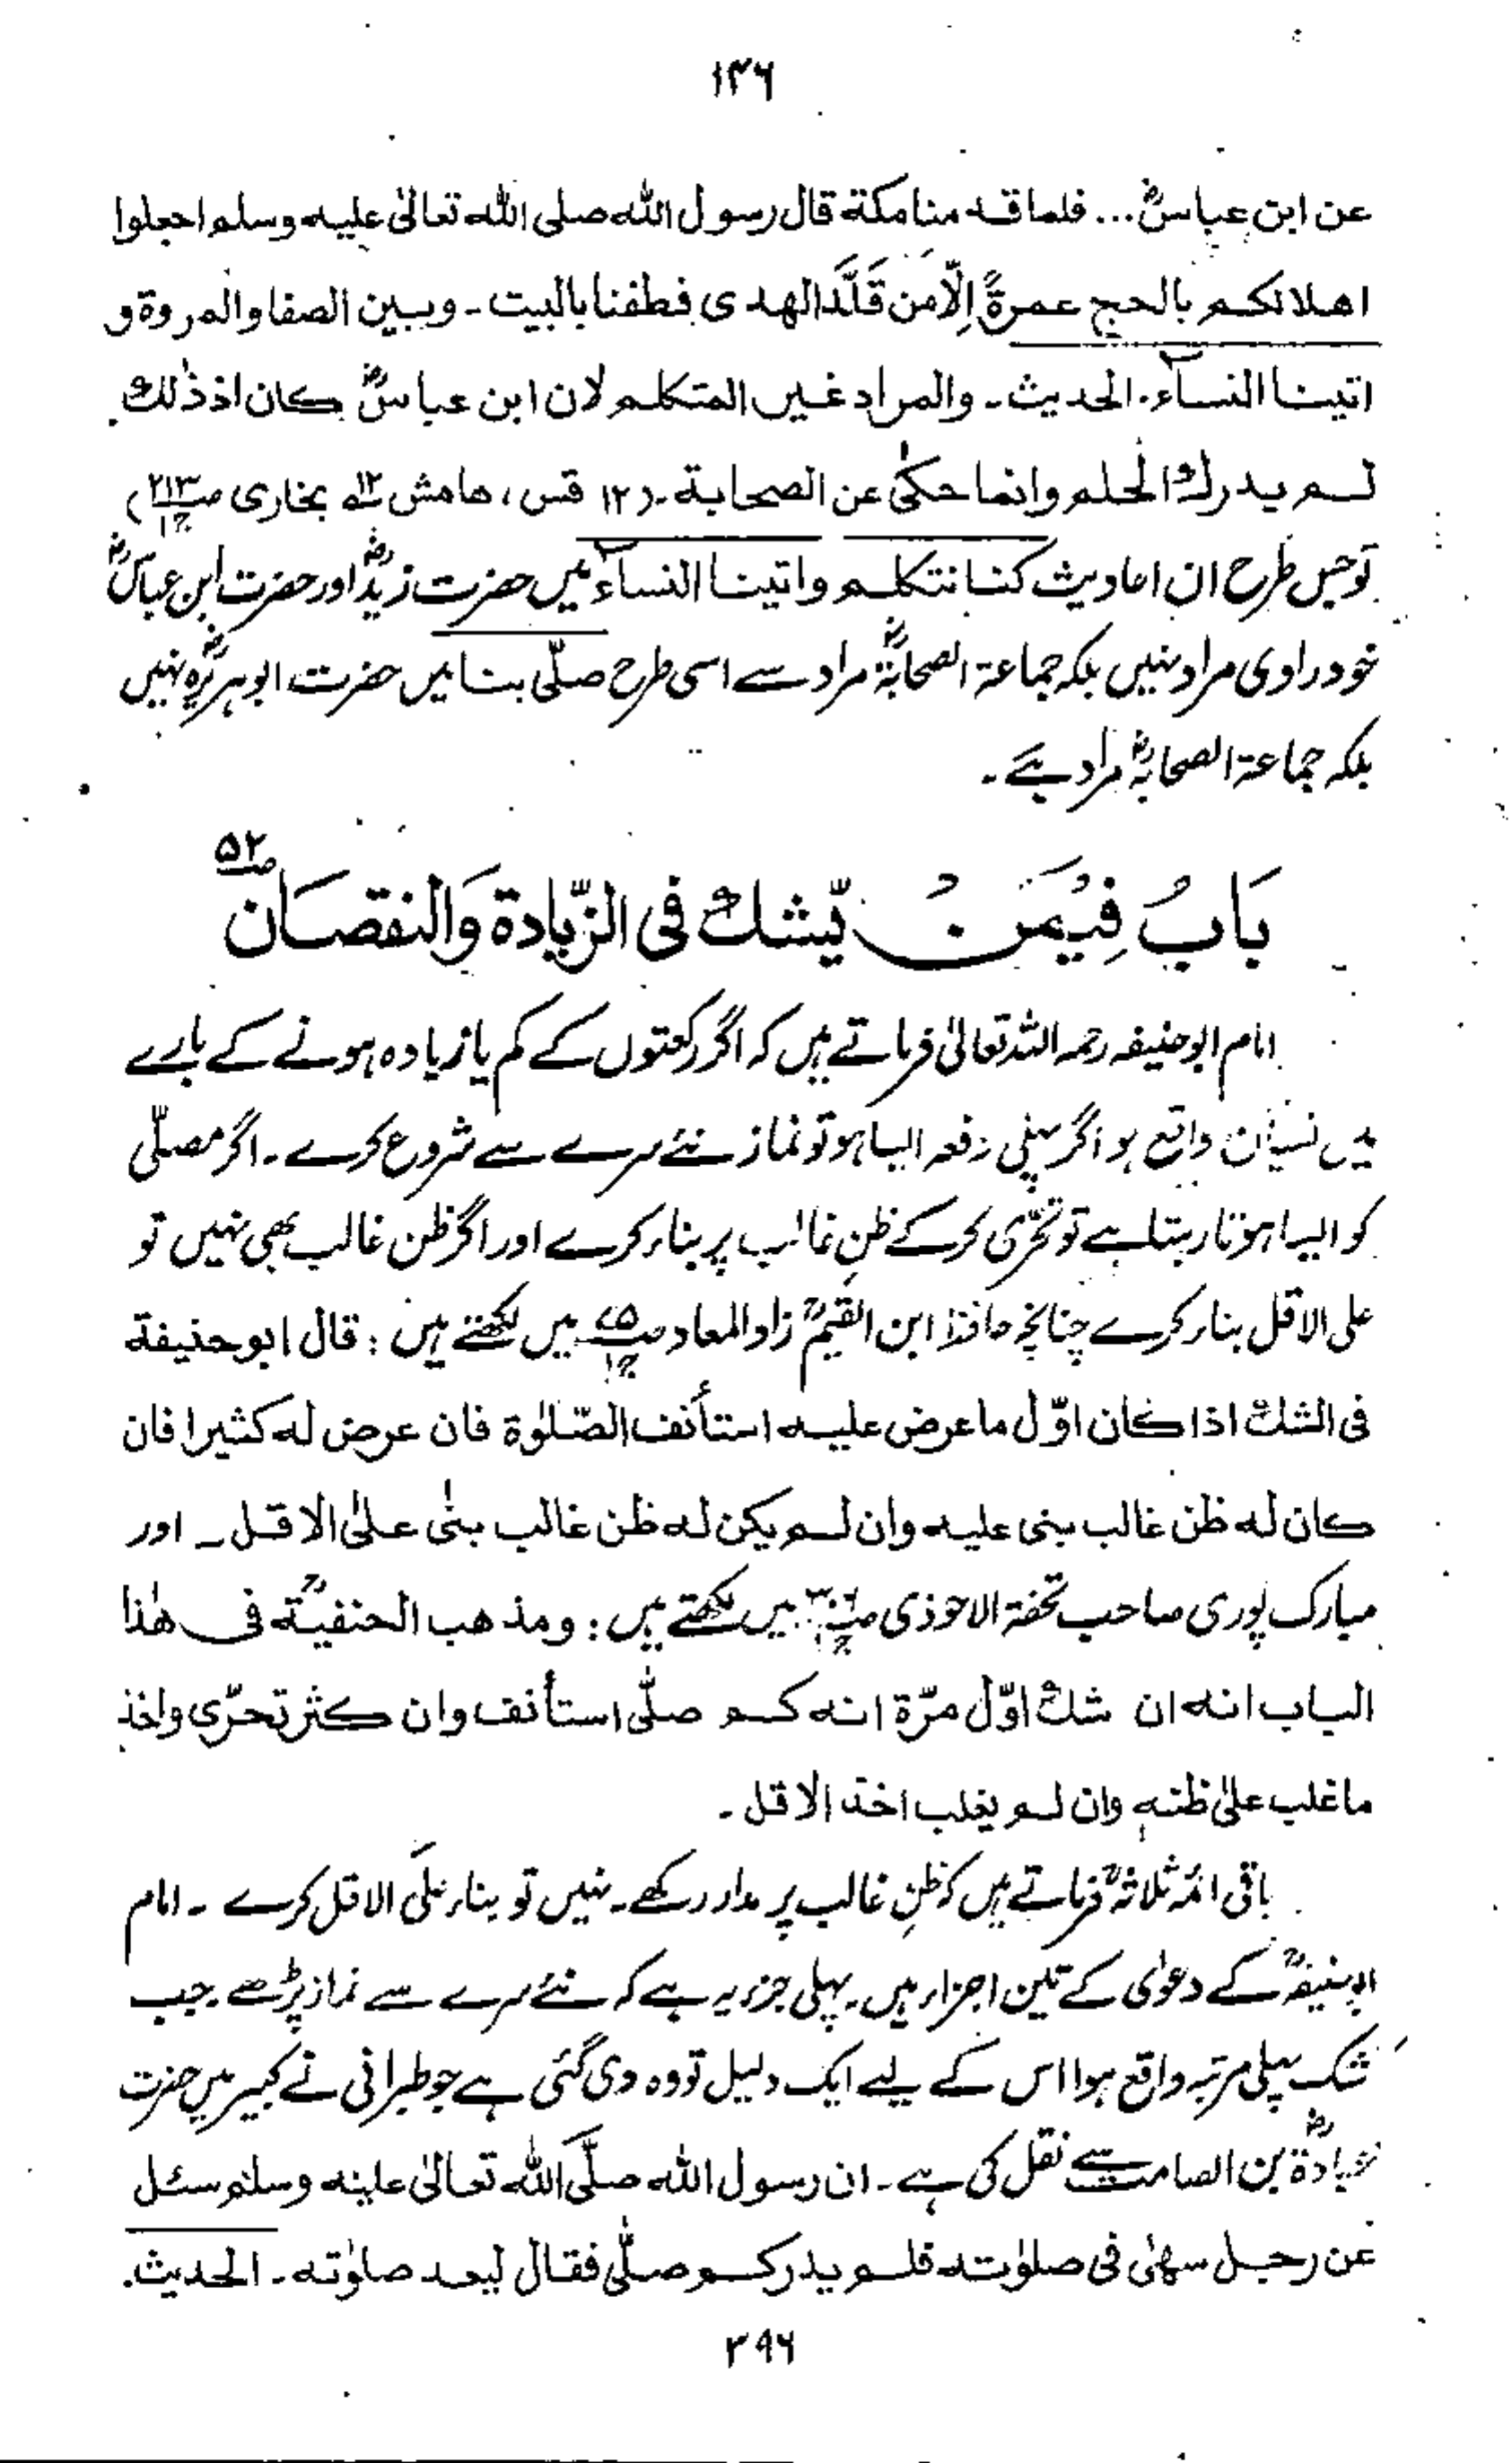 ۱۴۶
عن ابن عباسؓ... فلما قد منا مكة قال رسول الله صلى الله تعالىٰ عليه وسلم اجعلوا
اهلالكم بالحج عمرةً اِلَّا من قَلَّدَ الهدى فطفنا بالبيت ـ وبين الصفا والمروة و
اتينا النسآء، الحديث ـ والمراد غير المتكلم لان ابن عباسؓ كان اذ ذٰلك
لم يدرك الحلم وانما حكىٰ عن الصحابة ـ (۱۲ قس، هامش ۱۲ بخاری ص۲۱۳ ج۱)
توجس طرح ان احادیث كنا نتكلم و اتينا النسآء میں حضرت زیدؓ اور حضرت ابن عباسؓ
خود راوی مراد نہیں بلکہ جماعۃ الصحابۃؓ مراد ہے اسی طرح صلّٰى بنا میں حضرت ابو ہریرۃؓ نہیں
بلکہ جماعۃ الصحابۃؓ مراد ہے ۔
بَابُ فِیْمَنْ یَّشك فی الزّیادة وَالنقصَان ص۵۲
امام ابو حنیفہ رحمہ اللہ تعالیٰ فرماتے ہیں کہ اگر رکعتوں کے کم یا زیادہ ہونے کے بارے
میں نسیان واقع ہو اگر پہلی دفعہ ایسا ہو تو نماز نئے سرے سے شروع کرے ۔ اگر مصلّی
کو ایسا ہوتا رہتا ہے تو تحرّی کر کے ظنِ غالب پر بناء کرے اور اگر ظن غالب بھی نہیں تو
علی الاقل بناء کرے چنانچہ حافظ ابن القیمؒ زاد المعاد ص۷۵ ج۱ میں لکھتے ہیں : قال ابو حنيفة
فى الشك اذا كان اوّل ما عرض عليه استأنف الصّلوٰة فان عرض له كثيرا فان
كان له ظن غالب بنى عليه وان لم يكن له ظن غالب بنىٰ علىٰ الاقل ـ اور
مبارک پوری صاحب تحفۃ الاحوذی میں لکھتے ہیں : ومذهب الحنفيةؒ فى هٰذا
الباب انه ان شك اوّل مرّة انه كم صلّٰى استأنف وان كثر تحرّى واخذ
ما غلب علىٰ ظنه وان لم يغلب اخذ الاقل ـ
باقی ائمہ ثلاثہؒ فرماتے ہیں کہ ظنِ غالب پر مدار رکھے ۔ نہیں تو بناء علی الاقل کرے ۔ امام
ابوحنیفہؒ کے دعوٰی کے تین اجزاء ہیں ۔ پہلی جز یہ ہے کہ نئے سرے سے نماز پڑھے جب
شک پہلی مرتبہ واقع ہوا اس کے لیے ایک دلیل تو وہ دی گئی ہے جو طبرانی نے کبیر میں حضرت
عبادۃؓ بن الصامت سے نقل کی ہے ۔ ان رسول الله صلَّى الله تعالىٰ عليه وسلم سئل
عن رجل سهىٰ فى صلوٰته فلم يدر كم صلّٰى فقال ليعد صلوٰته ـ الحديث.
۳۹۶